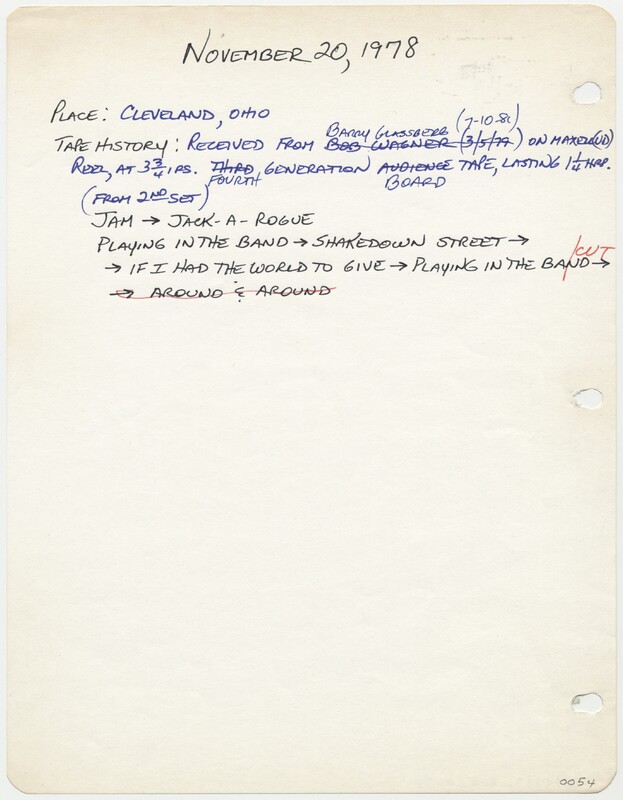 NOVEMBER 20, 1978
PLACE: CLEVELAND, OHIO
BARRY GLASSBERG (7-10-81)
TAPE HISTORY: RECEIVED FROM BOB WAGNER (3/5/79) ON MAXELL(UD)
REEL, AT 3 3/4 IPS. THIRD GENERATION AUDIENCE TAPE, LASTING 1 1/4 HRS.
FOURTH BOARD
(FROM 2ND SET)
JAM → JACK-A-ROGUE
PLAYING IN THE BAND → SHAKEDOWN STREET →
→ IF I HAD THE WORLD TO GIVE → PLAYING IN THE BAND /CUT →
→ AROUND & AROUND
0054